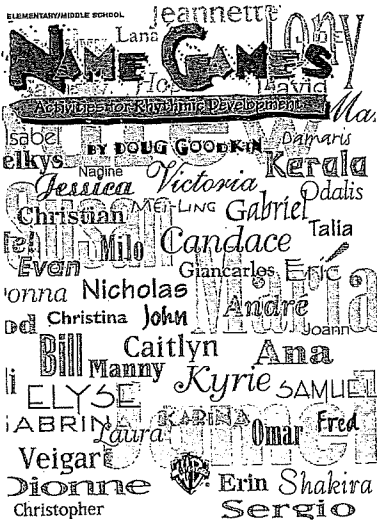 ELEMENTARY/MIDDLE SCHOOL
Jeannette
Lana
Tony
NAME GAMES
Hope
David
Activities for Rhythmic Development
Isabel
Damaris
BY DOUG GOODKIN
elkys
Nadine
Kerala
Jessica
Victoria
Odalis
Christian
MEI-LING
Gabriel
Susan
Talia
Milo
Candace
Evan
Giancarlos
Eric
onna
Nicholas
María
Andre
od
Christina
John
Joann
Bill
Caitlyn
Ana
Manny
Kyrie
SAMUEL
ELYSE
SABRINA
KARINA
Fred
Laura
Omar
Veigar
James
Dionne
Erin
Shakira
Christopher
Sergio